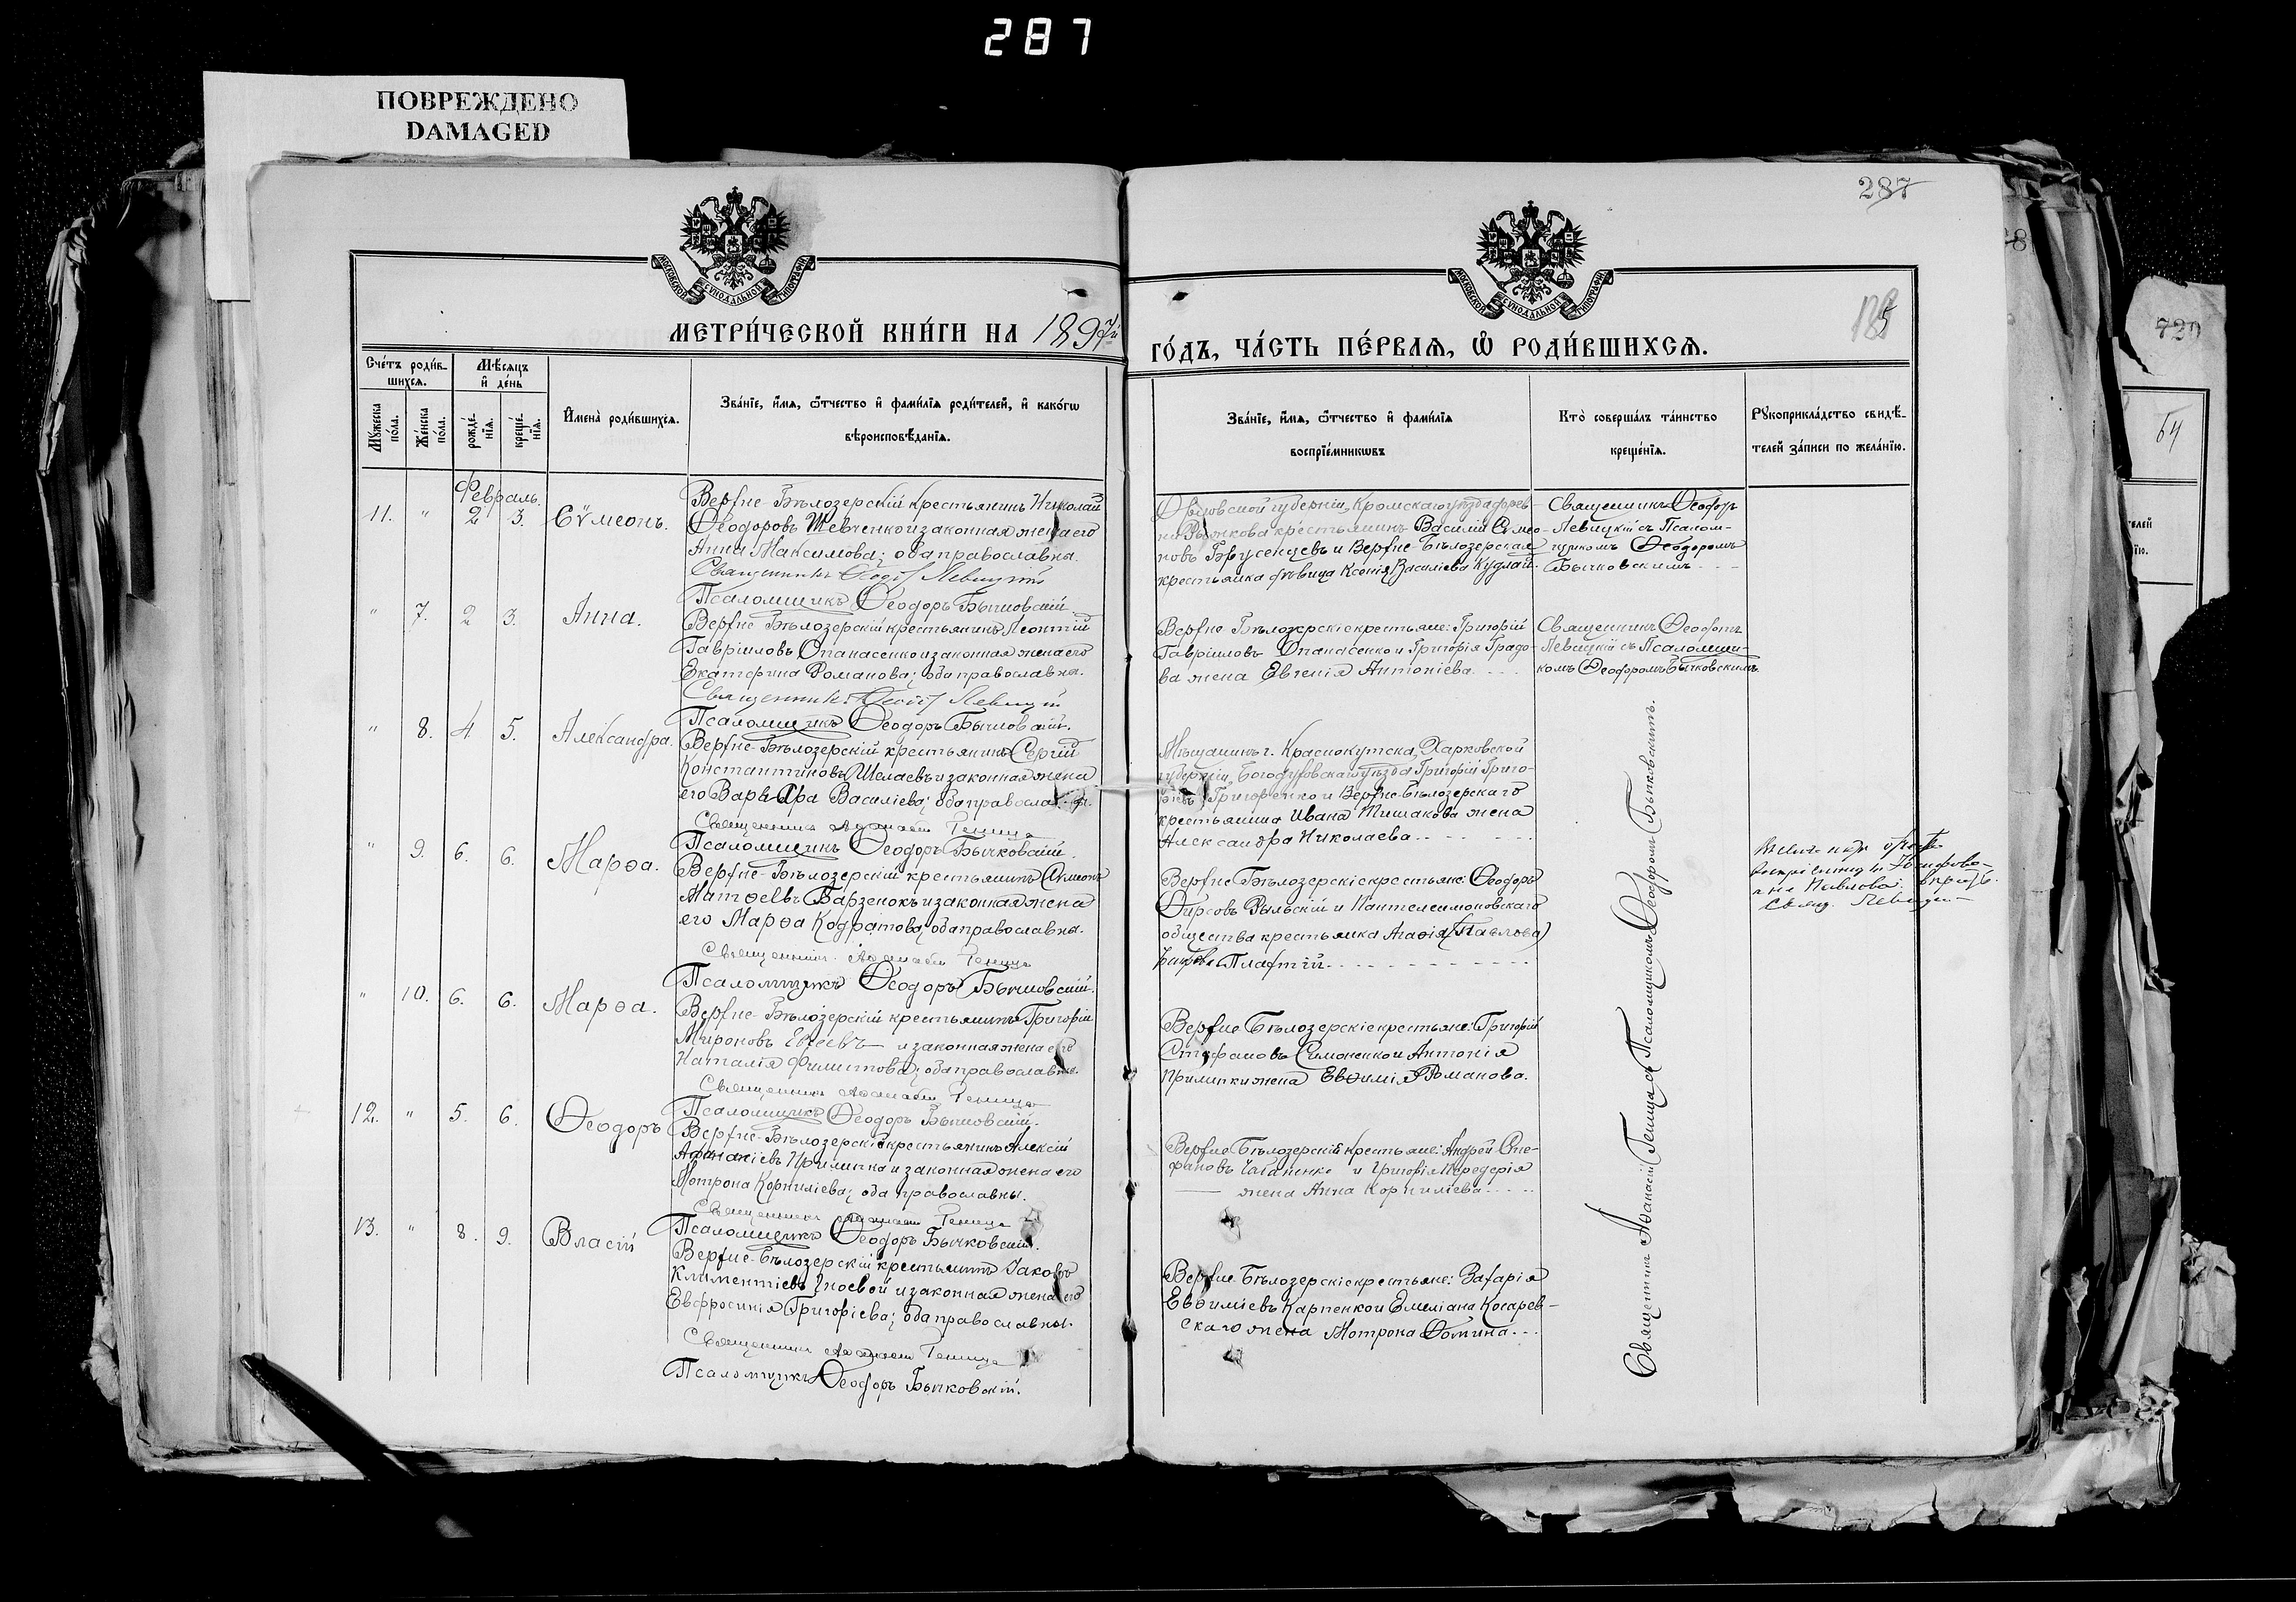 287
ПОВРЕЖДЕНО
DAMAGED
287
МОСКОВСКОЙ СѴНОДАЛЬНОЙ ТИПОГРАФІИ
МОСКОВСКОЙ СѴНОДАЛЬНОЙ ТИПОГРАФІИ
МЕТРИ́ЧЕСКОЙ КНИ́ГИ НА 1897й
ГО́ДЪ, ЧА́СТЬ ПЕ́РВАЯ, Ѡ РОДИ́ВШИХСЯ.
Сче́тъ роди́в-
шихся.
Мѣсяцъ
и де́нь
Мꙋжеска по́ла.
Же́нска по́ла.
рожде́-
нїя.
креще́-
нїя.
И҆мена̀ роди́вшихся.
Зва́нїе, и҆́мя, ѻ҆́тчество и҆ фами́лїя роди́телей, и҆ како́гѡ
вѣроисповѣ́данїя.
Зва́нїе, и҆́мя, ѻ҆́тчество и҆ фами́лїя
воспрїе́мникѡвъ
Кто̀ соверша́лъ та́инство
креще́нїя.
Рꙋкоприкла́дство свидѣ́-
телей за́писи по жела́нїю.
Февраль.
11. " 2 3. Сѵмеонъ.
Верхне-Бѣлозерскій крестьянинъ Николай
Ѳеодоровъ Шевченко и законная жена его
Анна Максимова; оба православны.
Священникъ Ѳеодоръ Левицкій
Псаломщикъ Ѳеодоръ Бычковскій
Орловской губерніи, Кромскаго уѣзда
крестьянинъ Василій Сѵмео-
новъ Брусенцевъ и Верхне-Бѣлозерская
крестьянка дѣвица Ксенія Василіева Кудлай.
Священникъ Ѳеодоръ
Левицкій съ Псалом-
щикомъ Ѳеодоромъ
Бычковскимъ
" 7. 2 3. Анна.
Верхне-Бѣлозерскій крестьянинъ Леонтій
Гавріиловъ Опанасенко и законная жена его
Екатерина Романова; оба православны.
Священникъ Ѳеодоръ Левицкій
Псаломщикъ Ѳеодоръ Бычковскій.
Верхне-Бѣлозерскіе крестьяне: Григорій
Гавріиловъ Опанасенко и Григорія Градо-
ва жена Евгенія Антоніева.
Священникъ Ѳеодоръ
Левицкій съ Псаломщи-
комъ Ѳеодоромъ Бычковскимъ.
" 8. 4 5. Александра.
Верхне-Бѣлозерскій крестьянинъ Сергій
Константиновъ Шелаевъ и законная жена
его Варвара Василіева; оба
Священникъ Аѳанасій Геница
Псаломщикъ Ѳеодоръ Бычковскій.
Мѣщанинъ г. Краснокутска, Харковской
губерніи, Богодуховскаго уѣзда Григорій Григо-
Григоренко и Верхне-Бѣлозерскаго
крестьянина Ивана Тишакова жена
Александра Николаева
" 9. 6. 6. Марѳа.
Верхне-Бѣлозерскій крестьянинъ Сѵмеонъ
Матѳеевъ Барзенокъ и законная жена
его Марѳа Кодратова; оба православны.
Священникъ Аѳанасій Геница
Псаломщикъ Ѳеодоръ Бычковскій.
Верхне Бѣлозерскіе крестьяне: Ѳеодоръ
Ѳирсовъ Рыльскій и Пантелеимоновскаго
общества крестьянка Агаѳія (Павлова)
Священ. Левицкій
" 10. 6. 6. Марѳа.
Верхне-Бѣлозерскій крестьянинъ Григорій
Мироновъ и законная жена его
Наталія Филиппова; оба православны.
Священникъ Аѳанасій Геница
Псаломщикъ Ѳеодоръ Бычковскій.
Верхне Бѣлозерскіе крестьяне: Григорій
Стефановъ Симоненко и Антонія
Прилипки жена Евѳимія Романова.
12. " 5. 6. Ѳеодоръ
Верхне-Бѣлозерскій крестьянинъ Алексій
Аѳанасіевъ Прилипка и законная жена его
Мотрона Корниліева; оба православны.
Священникъ Аѳанасій Геница
Псаломщикъ Ѳеодоръ Бычковскій.
Верхне Бѣлозерскіе крестьяне: Андрей Сте-
фановъ и Григорія Передерія
жена Анна Корниліева
13. " 8. 9. Власій
Верхне-Бѣлозерскій крестьянинъ Іаковъ
Климентіевъ Гноевой и законная жена его
Евфросинія Григоріева; оба православны.
Священникъ Аѳанасій Геница
Псаломщикъ Ѳеодоръ Бычковскій.
Верхне Бѣлозерскіе крестьяне: Захарія
Евѳиміевъ Карпенко и Емеліана Косарев-
скаго жена Мотрона Ѳомина
Священникъ Аѳанасій Геница съ Псаломщикомъ Ѳеодоромъ Бычковскимъ.